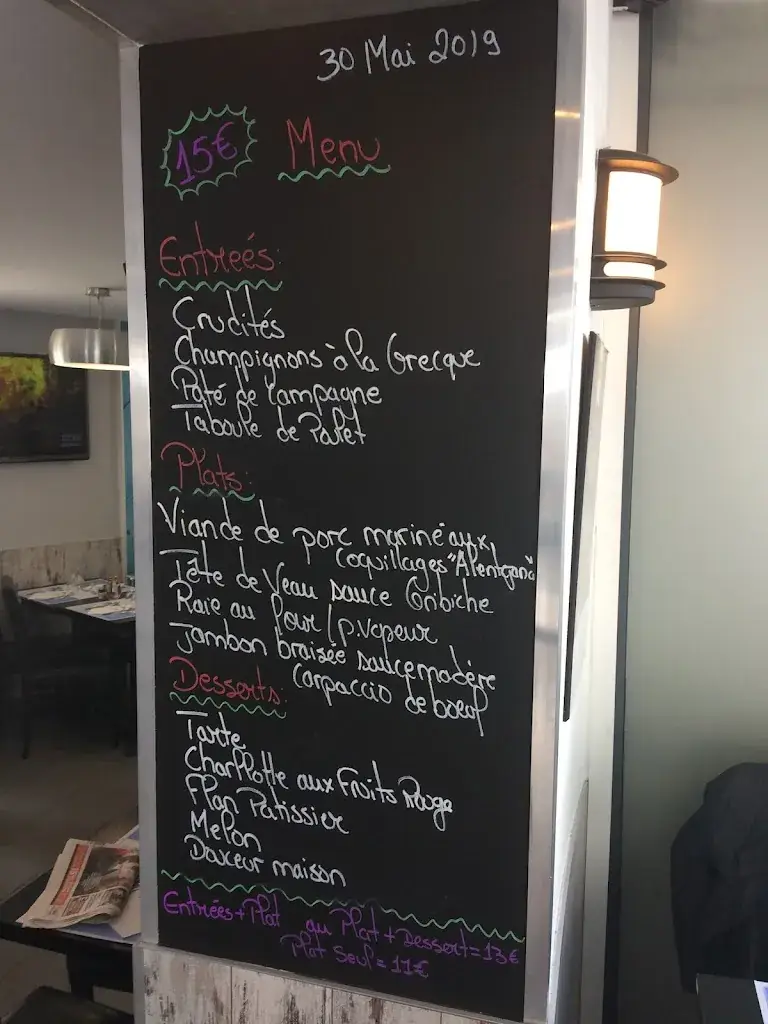 30 Mai 2019
15€ Menu
Entreés:
Crudités
Champignons à la Grecque
Paté de Campagne
Taboule de Palet
Plats:
Viande de porc mariné aux
coquillages "Alentejana"
Tête de Veau sauce Gribiche
Raie au four / p.vapeur
Jambon braisée sauce madère
Carpaccio de boeuf
Desserts:
Tarte
Charllotte aux Fruits Rouge
Flan Patissier
Melon
Douceur maison
Entrées+Plat ou Plat+Dessert=13€
Plat Seul=11€